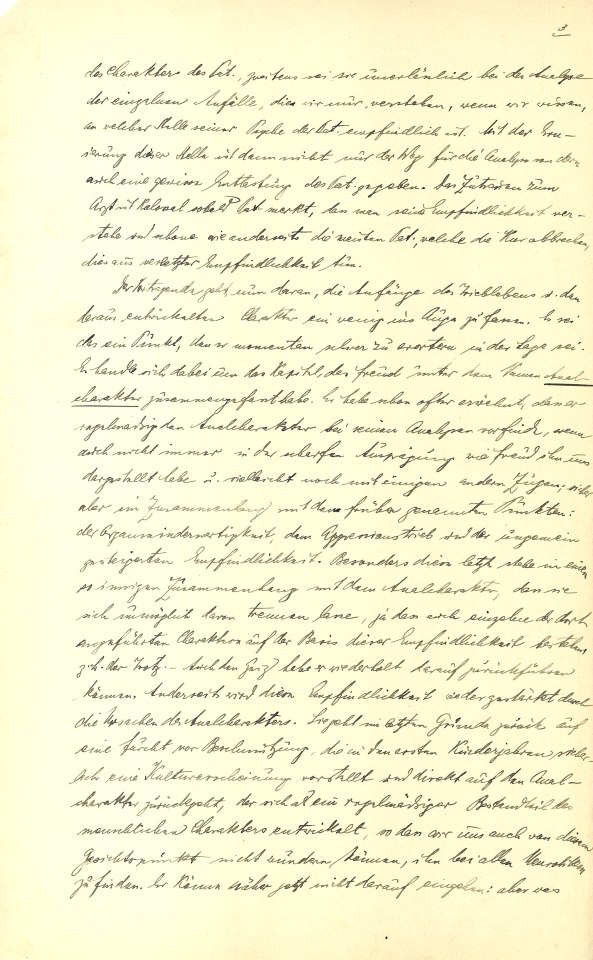 3
des Charakters des Pat., zweitens sei sie unerlässlich bei der Analyse
der einzelnen Anfälle, die wir nur verstehen, wenn wir wissen,
an welcher Stelle seiner Psyche der Pat. empfindlich ist. Mit der Eru-
ierung dieser Stelle ist dann nicht nur der Weg für die Analyse sondern
auch eine gewisse Entlastung des Pat. gegeben. Das Zutrauen zum
Arzt ist kolossal sobald Pat. merkt, dass man seine Empfindlichkeit ver-
stehe und schone wie anderseits die meisten Pat., welche die Kur abbrechen,
dies aus verletzter Empfindlichkeit tun.
Der Vortragende geht nun daran, die Anfänge des Trieblebens u. den
daraus entwickelten Charakter ein wenig ins Auge zu fassen. Es sei
das ein Punkt, den er momentan schwer zu erörtern in der Lage sei.
Es handle sich dabei um das Kapitel, das Freud unter dem Namen Anal-
charakter zusammengefasst habe. Er habe schon öfter erwähnt, dass er
regelmässig den Analcharakter bei seinen Analysen vorfinde, wenn
auch nicht immer in der scharfen Ausprägung wie Freud ihn uns
dargestellt habe u. vielleicht noch mit einigen andern Zügen; sicher
aber im Zusammenhang mit den früher genannten Punkten:
der Organminderwertigkeit, dem Aggressionstrieb und der ungemein
gesteigerten Empfindlichkeit. Besonders diese letzt. stehe in einem
so innigen Zusammenhang mit dem Analcharakter, dass sie
sich unmöglich davon trennen lasse, ja dass auch einzelne der dort
angeführten Charaktere auf der Basis dieser Empfindlichkeit bestehen,
z. B. der Trotz. – Auch den Geiz habe er wiederholt darauf zurückführen
können. Anderseits wird diese Empfindlichkeit wieder gestärkt durch
die Ursachen des Analcharakters. Sie geht im letzten Grunde zurück auf
eine Furcht vor Beschmutzung, die in den ersten Kinderjahren
eine Kulturerscheinung vorstellt und direkt auf den Anal-
charakter zurückgeht, der sich als ein regelmässiger Bestandteil des
menschlichen Charakters entwickelt, so dass wir uns auch von diesem
Gesichtspunkt nicht wundern können, ihn bei allen Neurotikern
zu finden. Er könne näher jetzt nicht darauf eingehen: aber was